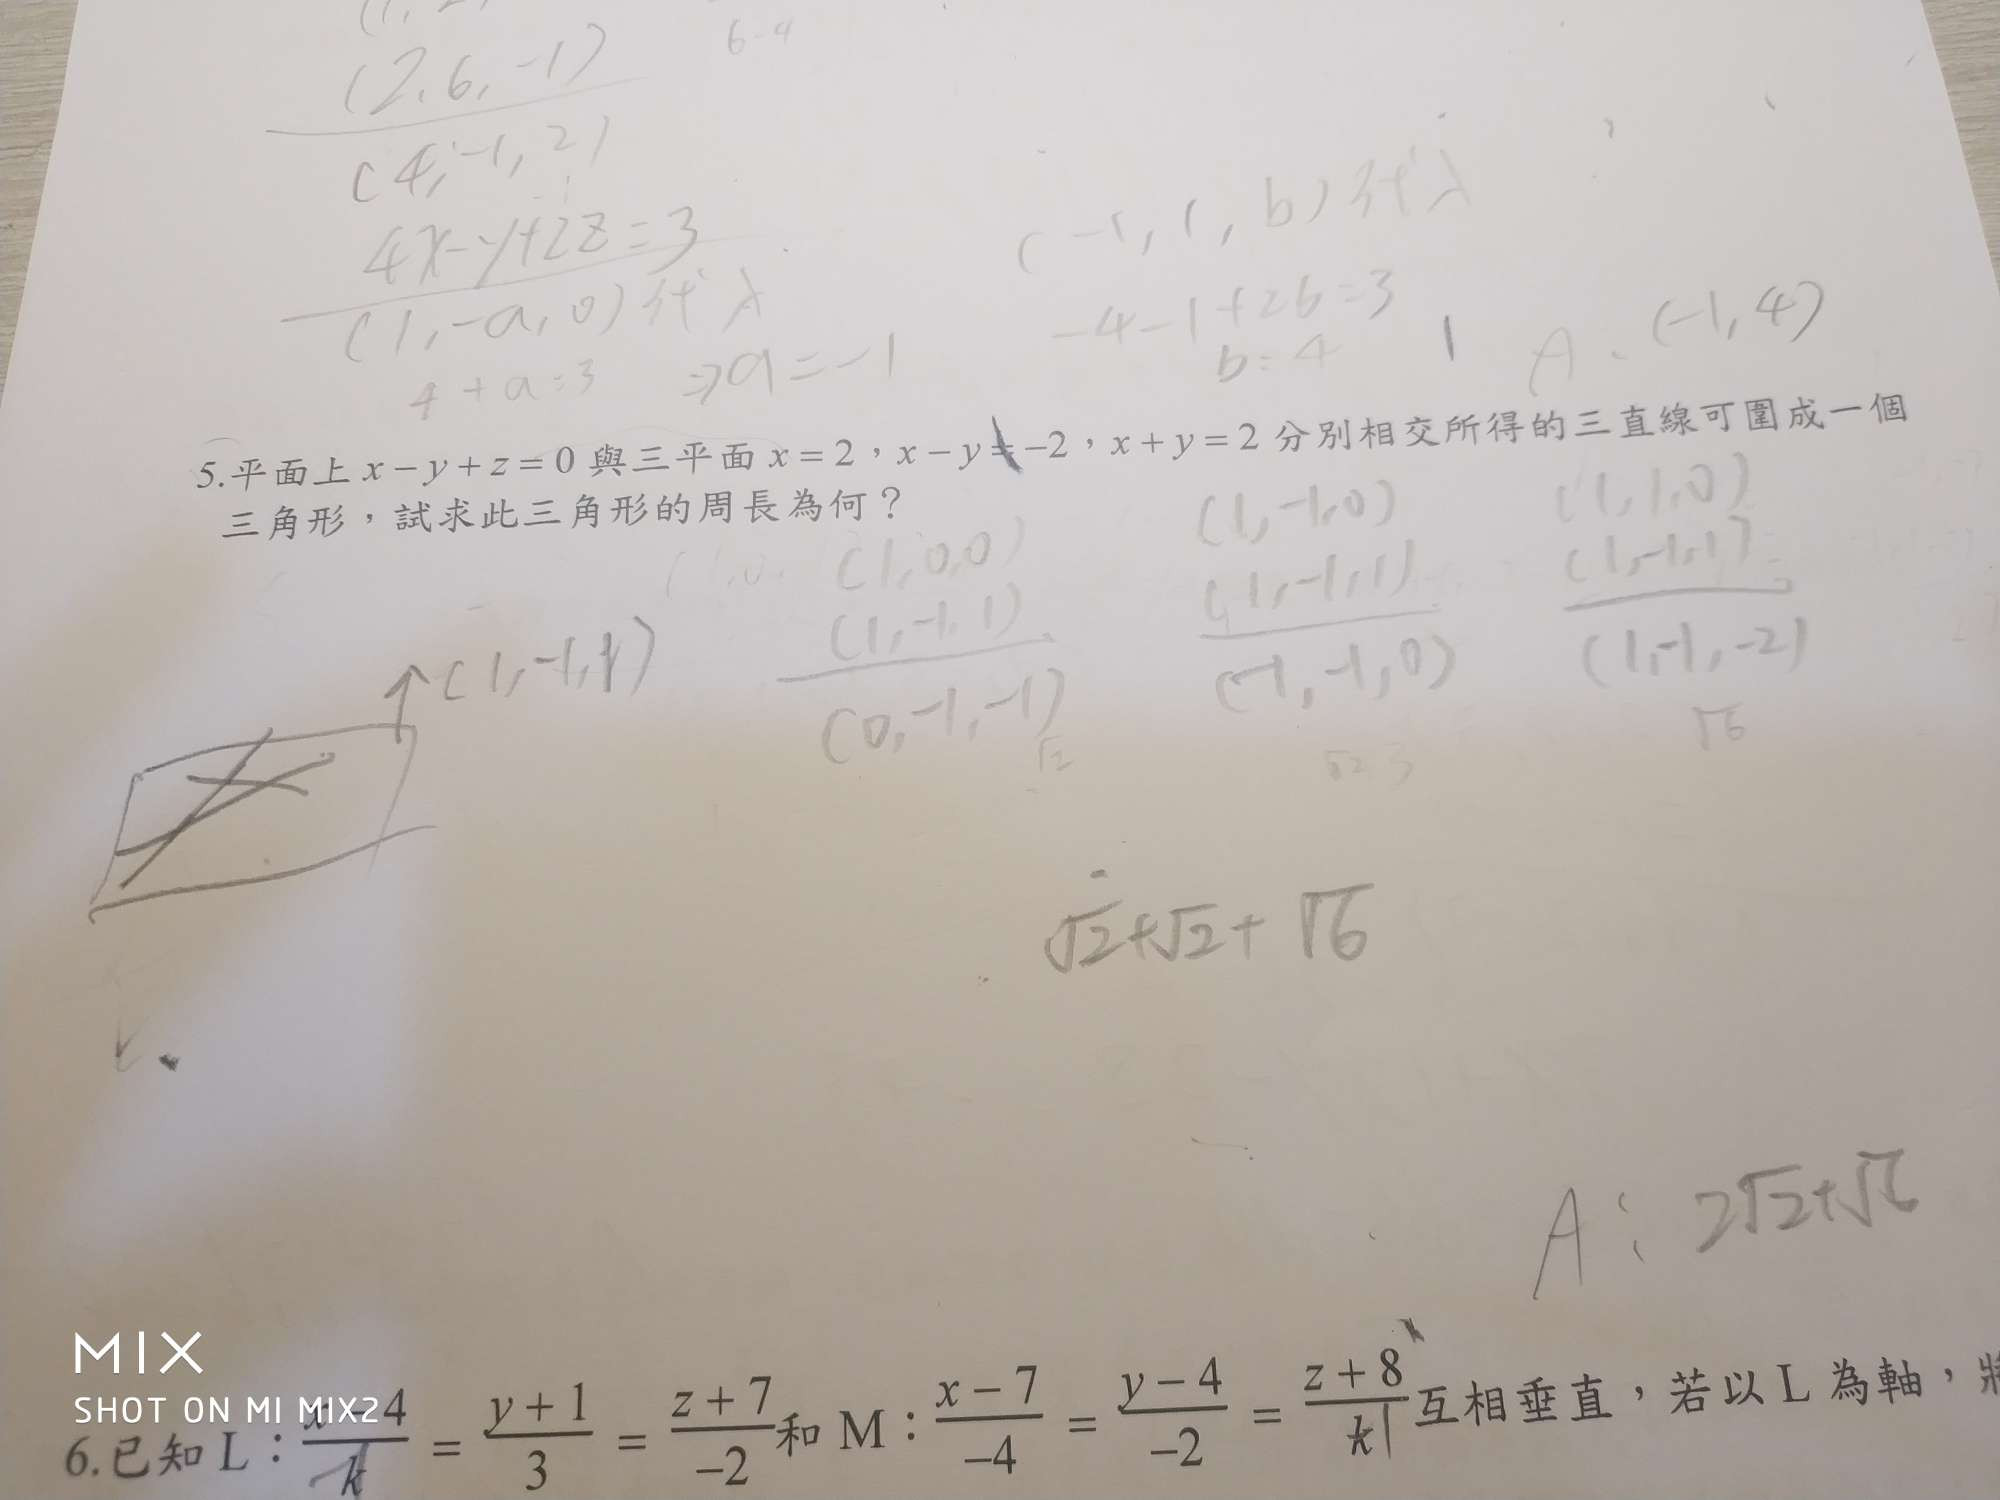 (2,6,-1)
6-4
(4,-1,2)
4x-y+2z=3
(-1,1,b)代入
(1,-a,0)代入
-4-1+2b=3
4+a=3 ⇒a=-1
b=4
A:(-1,4)
5.平面上 x-y+z=0 與三平面 x=2，x-y=-2，x+y=2 分別相交所得的三直線可圍成一個
三角形，試求此三角形的周長為何？
(1,0,0) (1,-1,0) (1,1,0)
(1,-1,1) (1,-1,1) (1,-1,1)
(1,-1,1)
(0,-1,-1) (-1,-1,0) (1,-1,-2)
√2 √2 √6
√2+√2+√6
A: 2√2+√6
MIX
SHOT ON MI MIX2
6.已知 L：x-4/k = y+1/3 = z+7/-2 和 M：x-7/-4 = y-4/-2 = z+8/k 互相垂直，若以 L 為軸，將